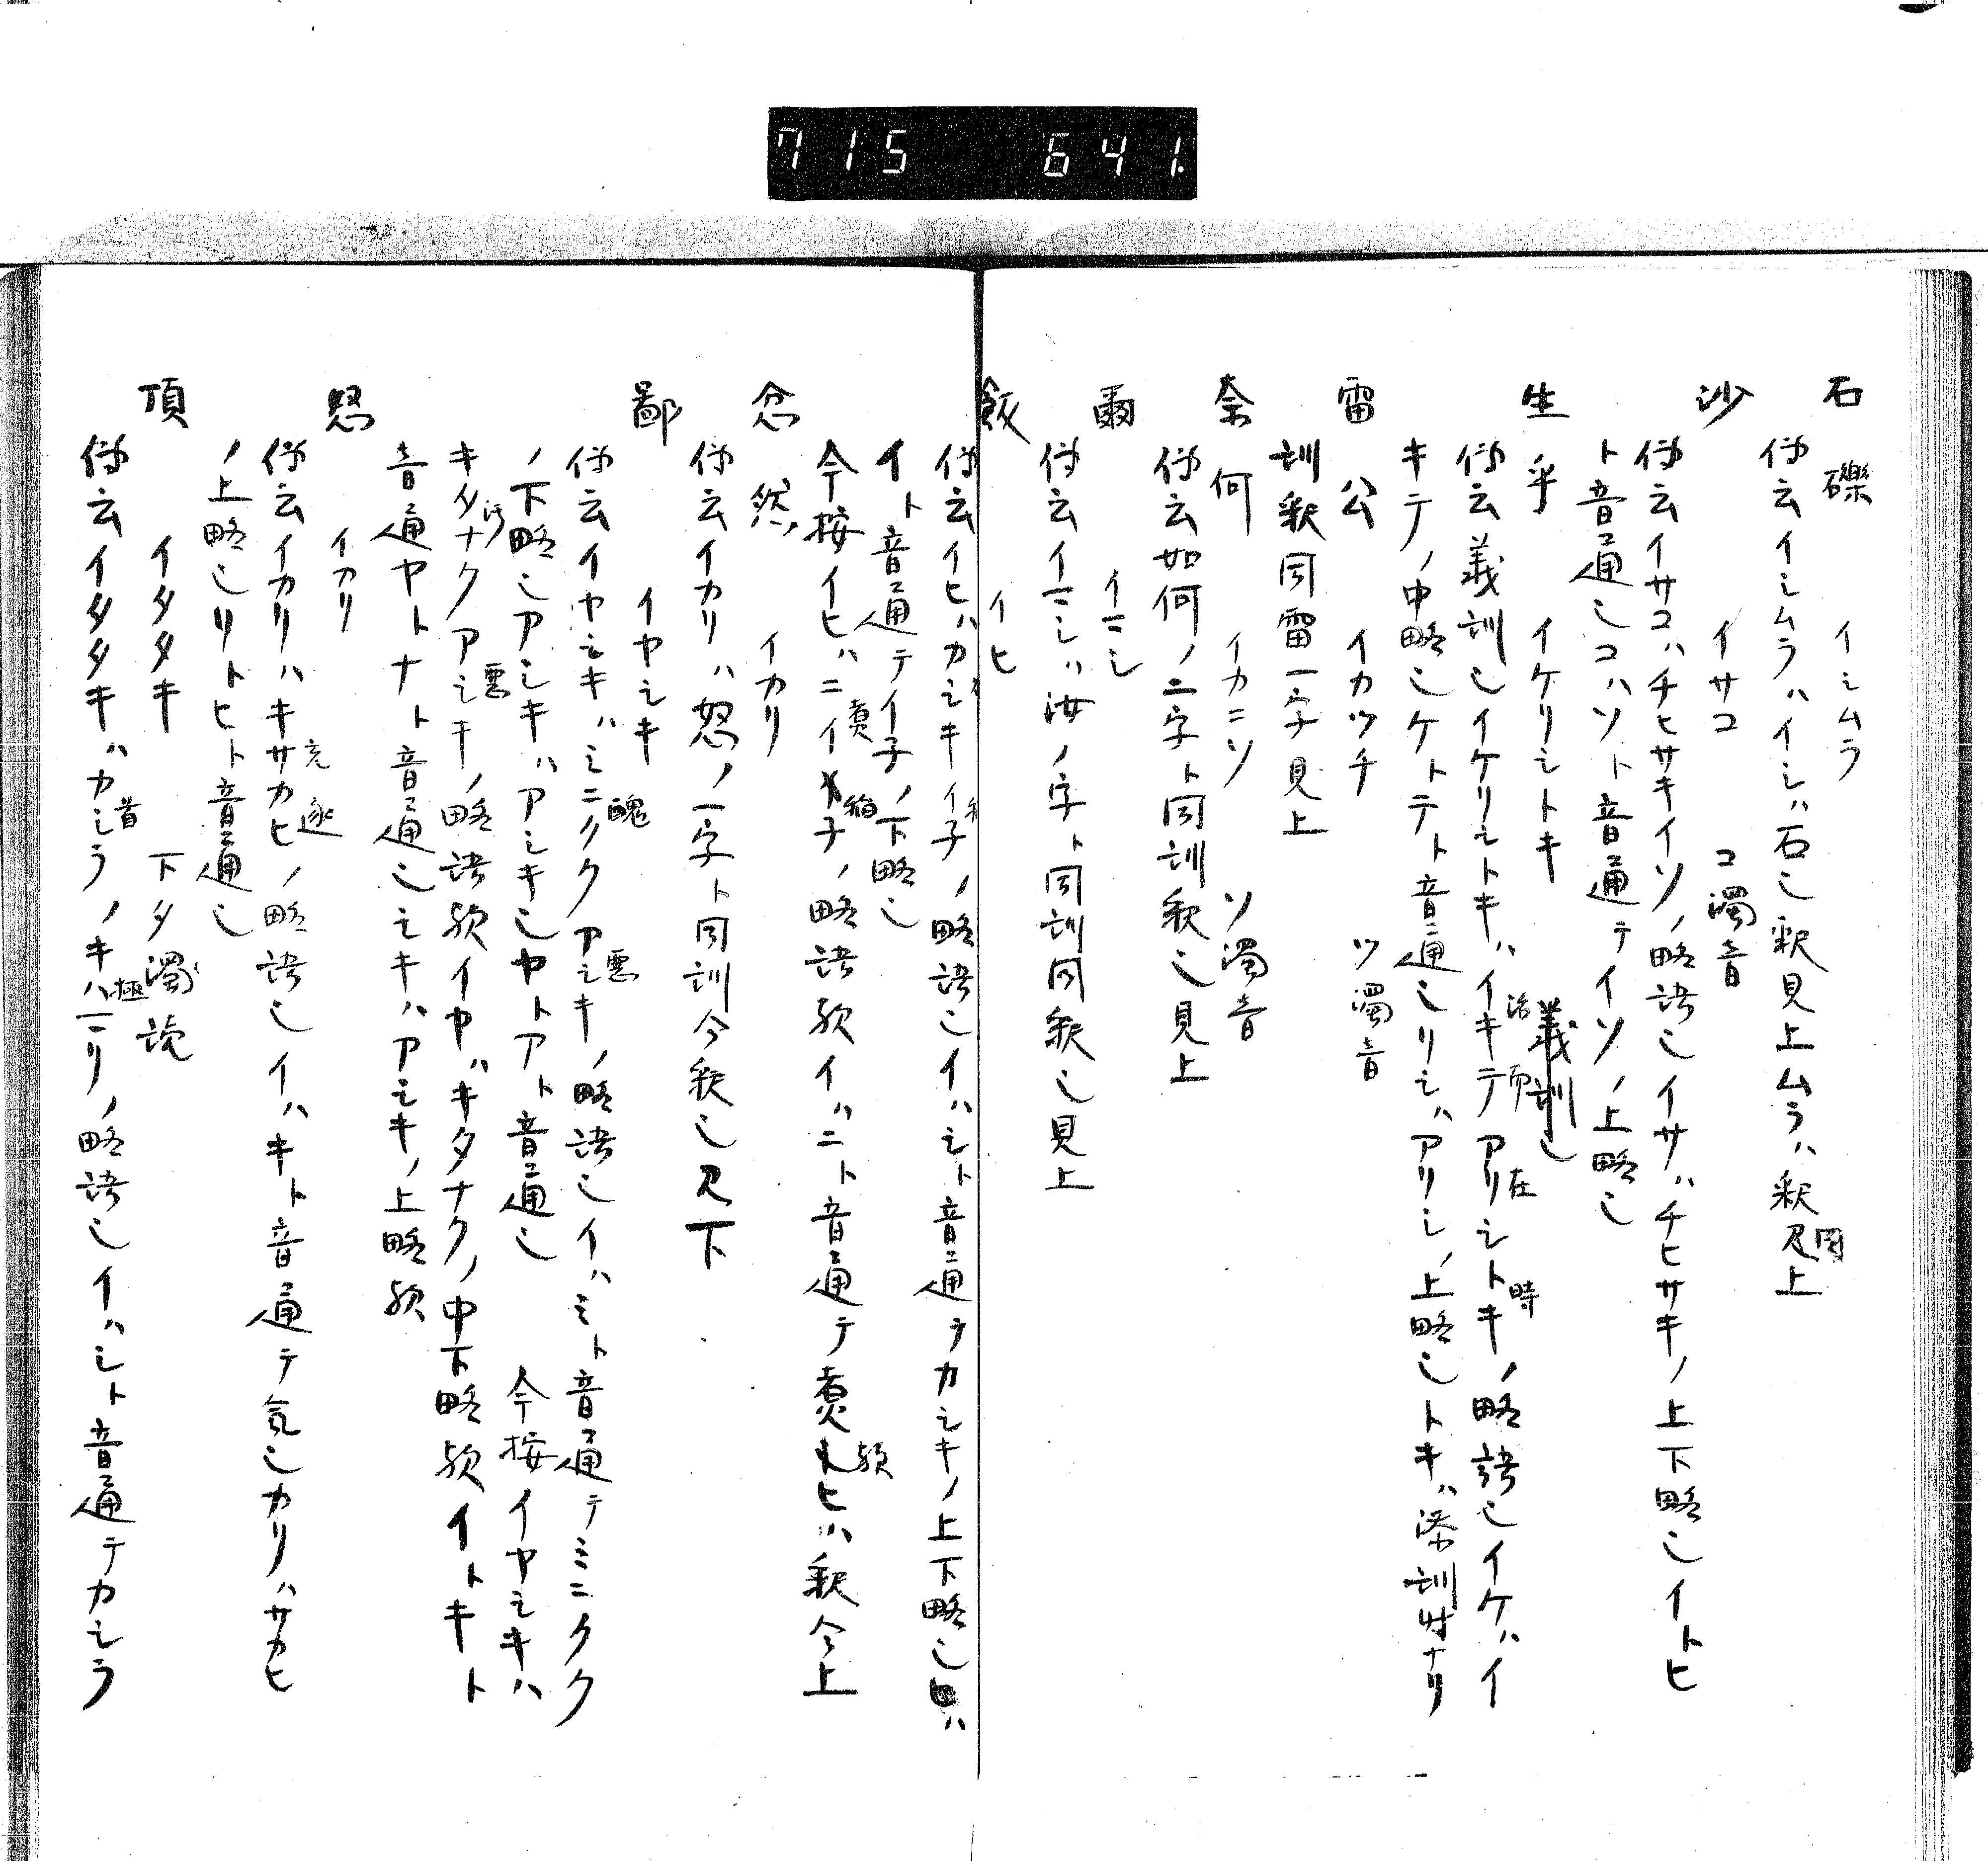 715 641.
石礫 イシムラ
師云イシムラハイシハ石也釈見上ムラハ釈同又上
沙 イサコ コ濁音
師云イサコハチヒサキイソノ略語也イサハチヒサキノ上下略也イトヒ
ト音通也コハソト音通テイソノ上略也
生乎 イケリシトキ 義訓也
師云義訓也イケリシトキハイキテアリシトキノ略語也イケハイ
活而 在 時
キテノ中略也ケトテト音通也リシハアリシノ上略也トキハ添訓ナリ
雷公 イカツチ ツ濁音
訓釈同雷一字見上
奈何 イカニソ ソ濁音
師云如何ノ二字ト同訓釈也見上
爾 イマシ
師云イマシハ汝ノ字ト同訓同釈也見上
飯 イヒ
師云イヒハカシキイネノ略語也イハシト音通テカシキノ上下略也ヒハ
イト音通テイネノ下略也
今按イヒハニイネノ略語歟イハニト音通テ煮歟ヒハ釈今上
煮 稲
忿然 イカリ
師云イカリハ怒ノ一字ト同訓今釈也又下
鄙 イヤシキ
師云イヤシキハミニククアシキノ略語也イハミト音通テミニクク
醜 悪
ノ下略也アシキハアシキ也ヤトアト音通也 今按イヤシキハ
キタナクアシキノ略語歟イヤハキタナクノ中下略歟イトキト
汚 悪
音通ヤトナト音通也シキハアシキノ上略歟
怒 イカリ
師云イカリハキサカヒノ略語也イハキト音通テ気也カリハサカヒ
ノ上略也リトヒト音通也
頂 イタタキ 下タ濁読
師云イタタキハカシラノキハマリノ略語也イハシト音通テカシラ
首 極